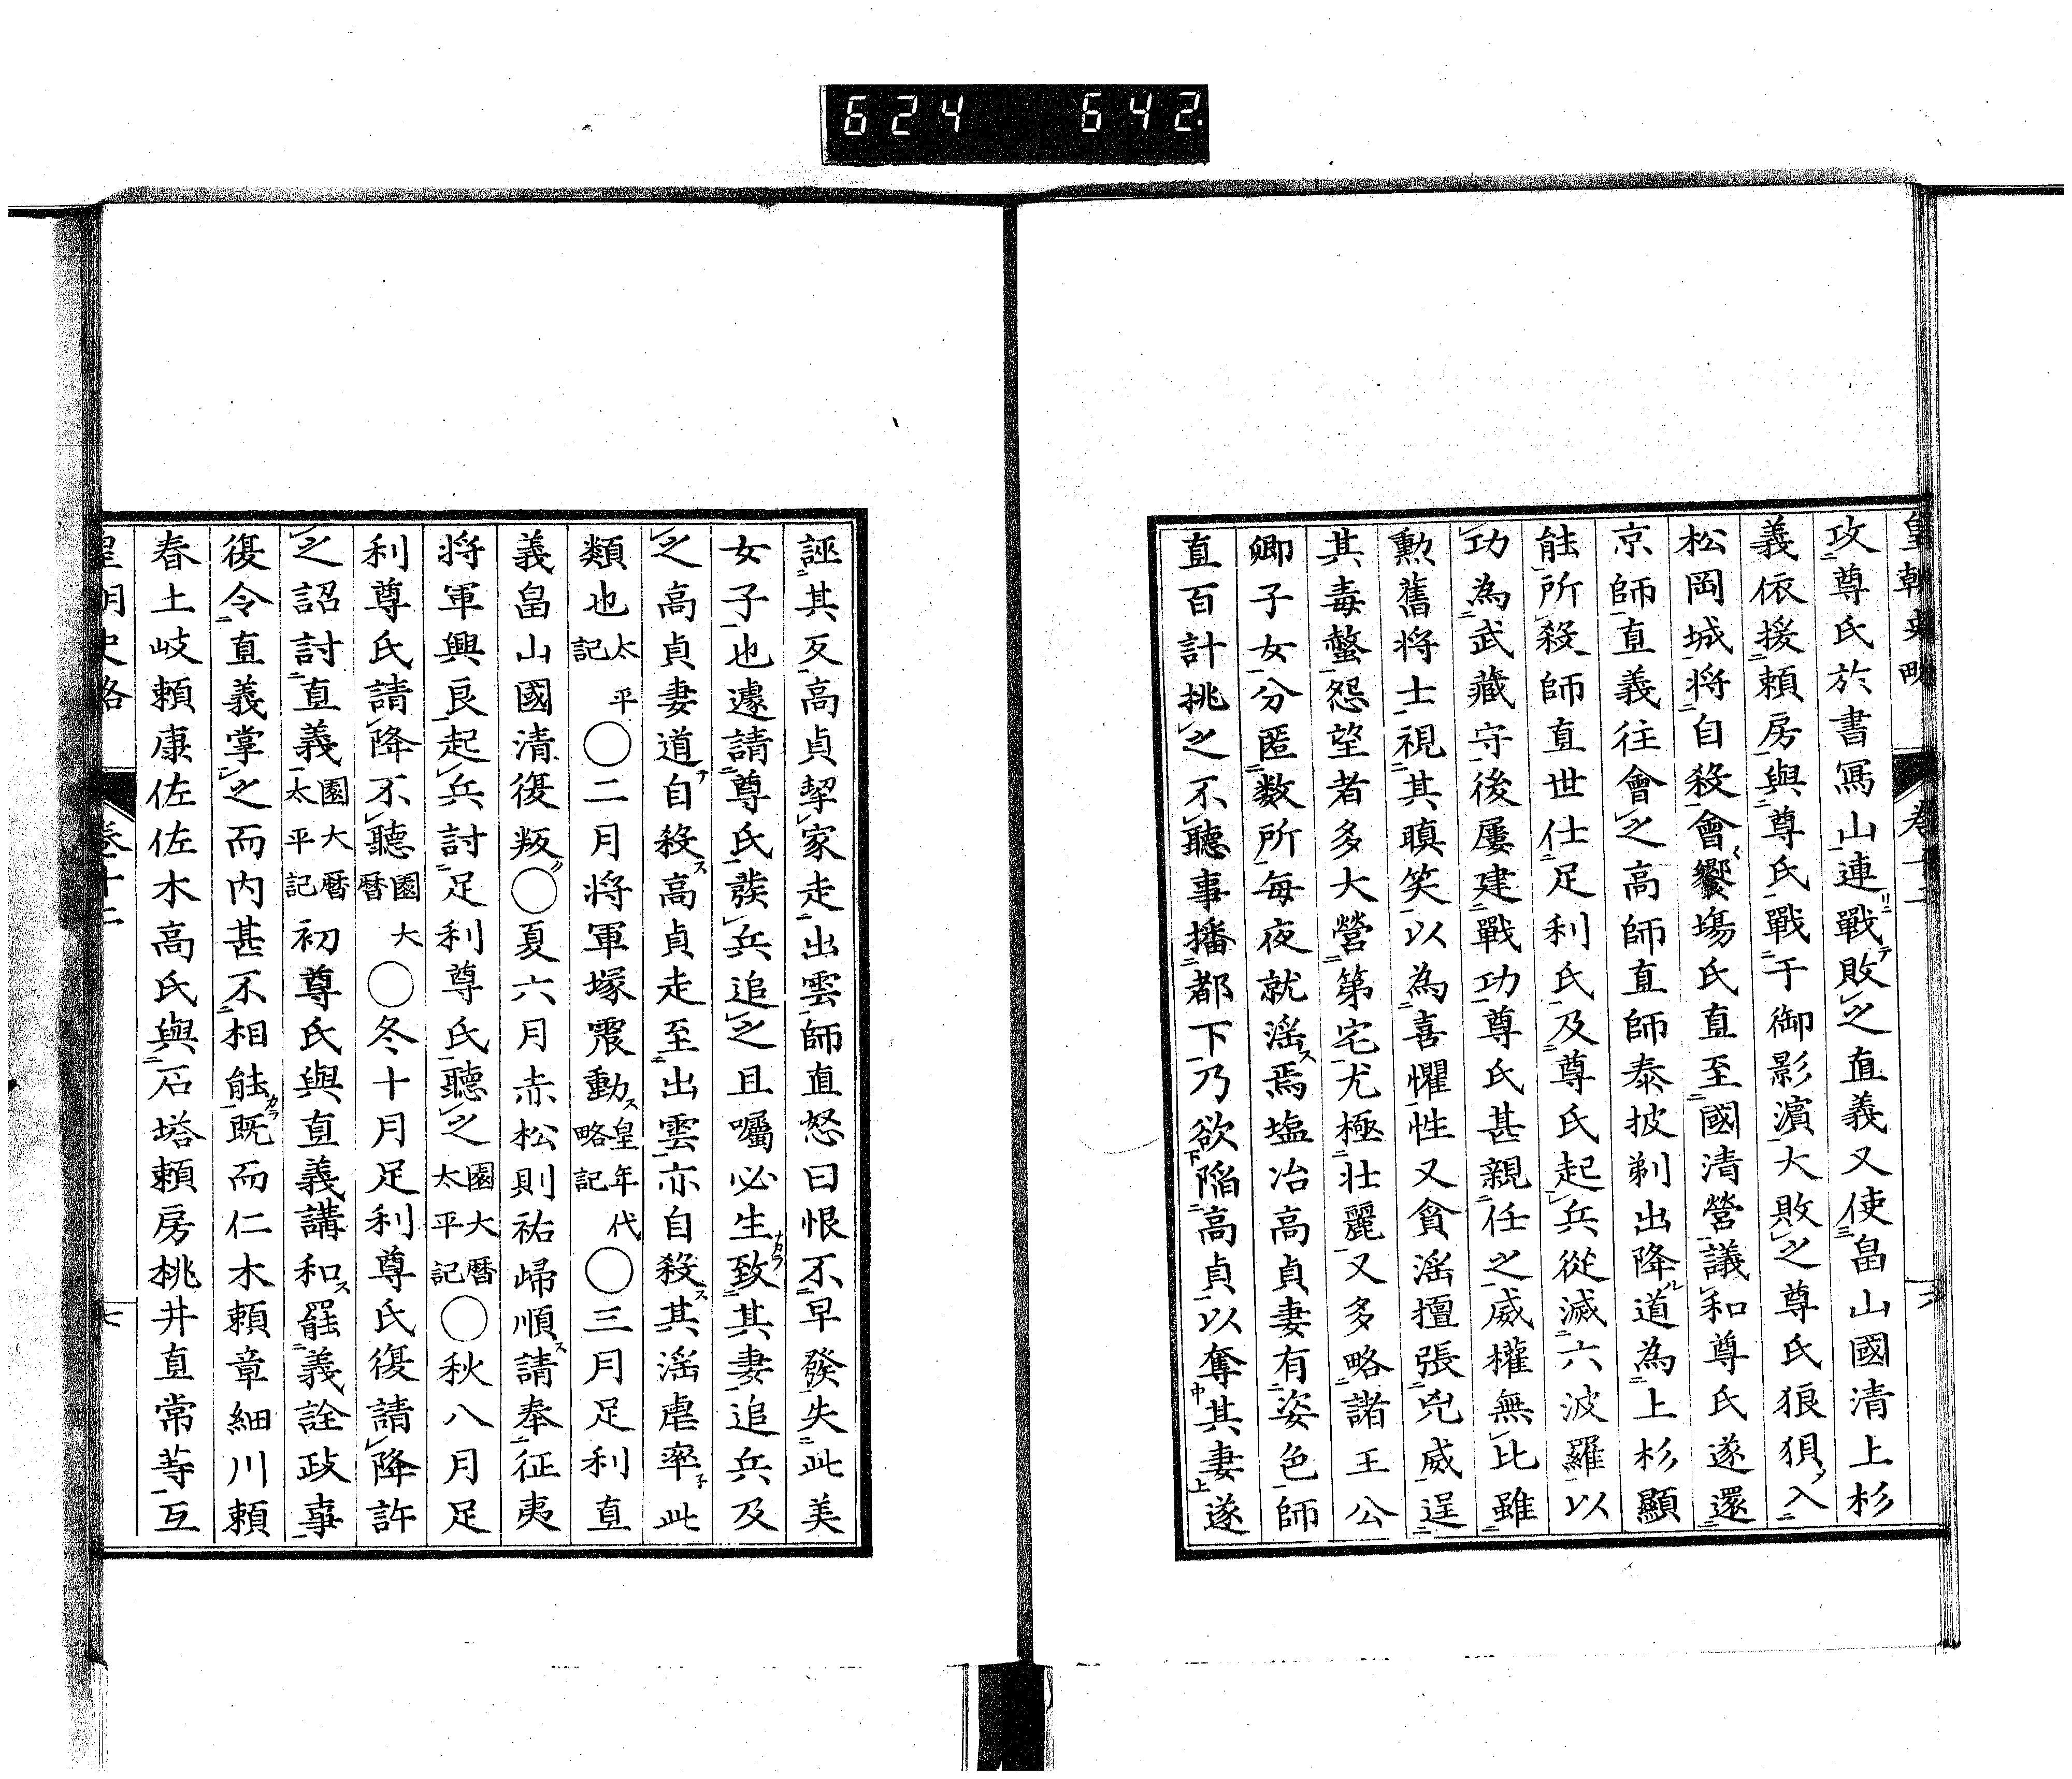 624 642.
皇朝史略 卷十二 六
攻尊氏於書寫山連戰敗之直義又使畠山國清上杉
義依援賴房與尊氏戰于御影濱大敗之尊氏狼狽入
松岡城將自殺會饗塲氏直至國清營議和尊氏遂還
京師直義往會之高師直師泰披剃出降道為上杉顯
能所殺師直世仕足利氏及尊氏起兵從滅六波羅以
功為武藏守後屢建戰功尊氏甚親任之威權無比雖
勲舊將士視其瞋笑以為喜懼性又貪滛擅張兇威逞
其毒螫怨望者多大營第宅尤極壮麗又多略諸王公
卿子女分匿数所每夜就滛焉塩冶高貞妻有姿色師
直百計挑之不聽事播都下乃欲陷高貞以奪其妻遂
誣其反高貞挈家走出雲師直怒曰恨不早發失此美
女子也遽請尊氏發兵追之且囑必生致其妻追兵及
之高貞妻道自殺高貞走至出雲亦自殺其滛虐率此
類也太平記○二月將軍塚震動皇年代略記○三月足利直
義畠山國清復叛○夏六月赤松則祐歸順請奉征夷
將軍興良起兵討足利尊氏聽之園大曆太平記○秋八月足
利尊氏請降不聽園大曆○冬十月足利尊氏復請降許
之詔討直義園大曆太平記初尊氏與直義講和罷義詮政事
復令直義掌之而内甚不相能既而仁木賴章細川賴
春土岐賴康佐佐木高氏與石塔賴房桃井直常等互
皇朝史略 卷十二 七